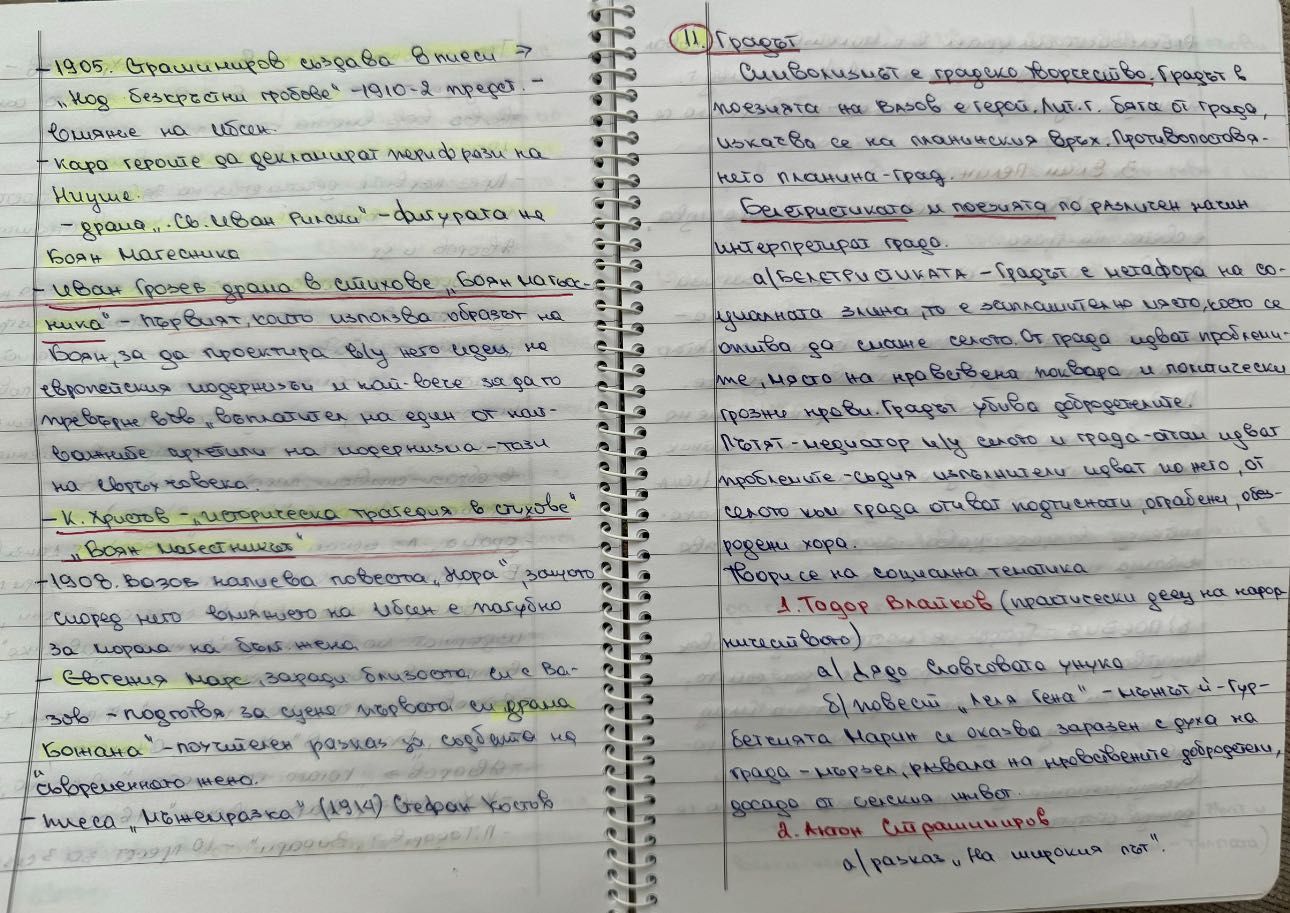 - 1905. Страшимиров създава 8 пиеси →
„Над безкръстни гробове" - 1910 - 2 предст. -
влияние на Ибсен.
- кара героите да декламират перифрази на
Ницше.
- драма „Св. Иван Рилски" - фигурата на
Боян Магесника
- Иван Грозев драма в стихове „Боян магьос-
ника" - първият, който използва образът на
Боян, за да проектира в/у него идеи на
европейския модернизъм и най-вече за да го
превърне във „въплатител на един от най-
важните архетипи на модернизма - този
на свръхчовека.
- К. Христов - „историческа трагедия в стихове"
„Боян магестникът"
- 1908. Вазов написва повестта „Нора", защото
според него влиянието на Ибсен е пагубно
за морала на бълг. жена
- Евгения Марс, заради близостта си с Ва-
зов - подготвя за сцена първата си драма
„Божана" - поучителен разказ за съдбата на
съвременната жена.
- пиеса „Мъжемразка" (1914) Стефан Костов
11. Градът
Символизмът е градско творчество. Градът в
поезията на Вазов е герой. Лит. г. бяга от града,
изкачва се на планинския връх. Противопоставя-
нето планина-град.
Белетристиката и поезията по различен начин
интерпретират града.
а/ БЕЛЕТРИСТИКАТА - Градът е метафора на со-
циалната злина, то е заплашително място, което се
опитва да смаже селото. От града идват проблеми-
те, място на нравствена поквара и политически
грозни нрави. Градът убива добродетелите.
Пътят - медиатор м/у селото и града - оттам идват
проблемите - съдия изпълнители идват по него, от
селото към града отиват подтиснати, ограбени, обез-
родени хора.
Твори се на социална тематика
1. Тодор Влайков (практически деец на народ-
ничеството)
а/ Дядо Славчовата унука
б/ повест „Леля Гена" - мъжът ѝ - Гур-
бетчията Марин се оказва заразен с духа на
града - мързел, развала на нравствените добродетели,
досада от селския живот.
2. Антон Страшимиров
а/ разказ „На широкия път".